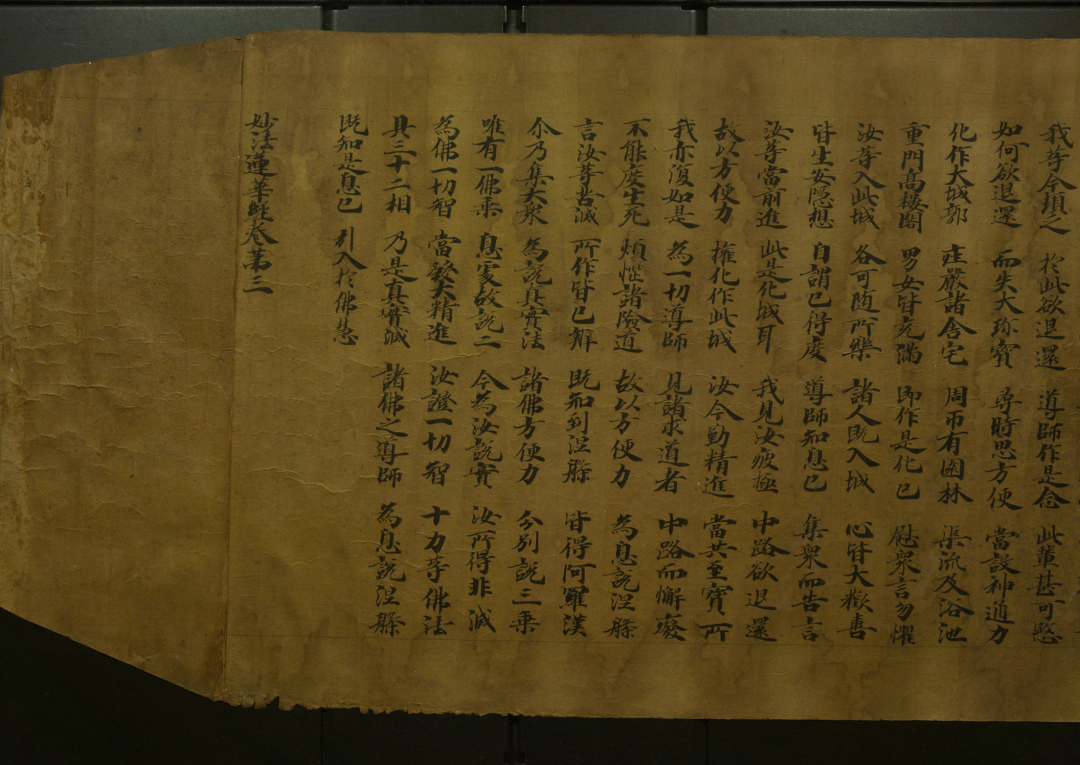 我等今頓乏 於此欲退還 導師作是念 此輩甚可愍
如何欲退還 而失大珎寶 尋時思方便 當設神通力
化作大城郭 莊嚴諸舍宅 周帀有園林 渠流及浴池
重門高樓閣 男女皆充滿 即作是化已 慰衆言勿懼
汝等入此城 各可随所樂 諸人既入城 心皆大歡喜
皆生安隱想 自謂已得度 導師知息已 集衆而告言
汝等當前進 此是化城耳 我見汝疲極 中路欲退還
故以方便力 權化作此城 汝今勤精進 當共至寶所
我亦復如是 為一切導師 見諸求道者 中路而懈廢
不能度生死 煩惱諸險道 故以方便力 為息說涅槃
言汝等苦滅 所作皆已辦 既知到涅槃 皆得阿羅漢
尒乃集大衆 為說真實法 諸佛方便力 分別說三乘
唯有一佛乘 息處故說二 今為汝說實 汝所得非滅
為佛一切智 當發大精進 汝證一切智 十力等佛法
具三十二相 乃是真實滅 諸佛之導師 為息說涅槃
既知是息已 引入於佛慧
妙法蓮華經卷第三